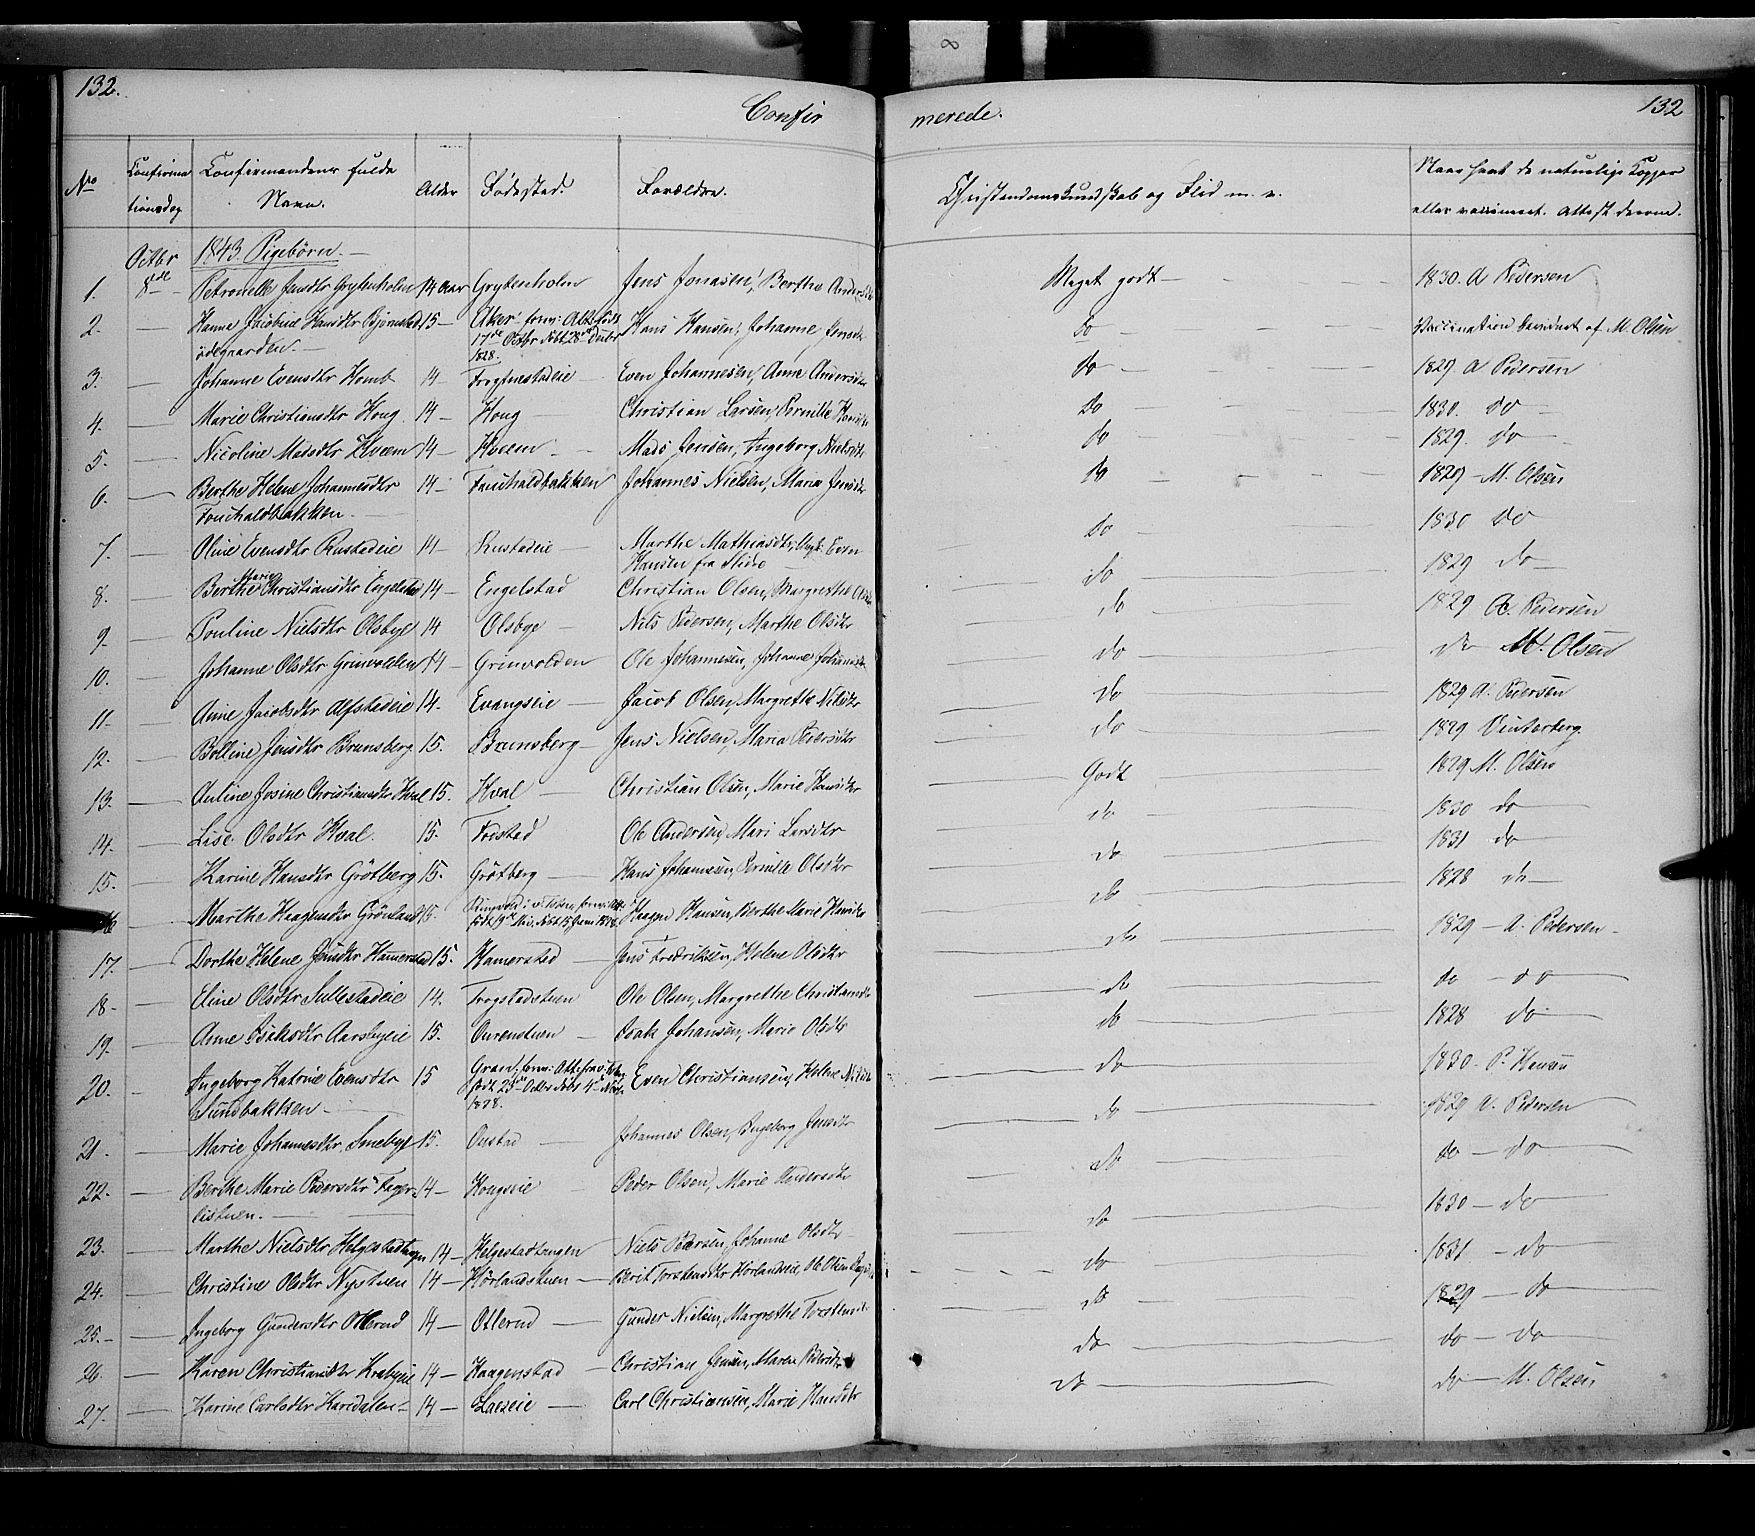 132.
Confir merede.
132
No Confirma Confirmandens fulde Alder Fødested. Forældre. Christendomskundskab og Flid m. v. Naar havt de naturlige Kopper
tionsdag Navn. eller vaccineret. Attest derom.
Octbr 1843. Pigebørn.
1. 8de Petronelle Jensdtr Grytenholm 14 Aar Grytenholm Jens Jonasen, Berthe Andersdtr Meget godt 1830. A Pedersen
2. Hanne Jacobine Hansdtr Bjørnstad 15 Aker. Hans Hansen, Johanne Jensdtr do Vaccination bevidnet af M. Olsen
ødegaarden. 17de Octbr døbt 28de Decbr
1828.
3. Johanne Evensdtr Homb 14 Even Johannesen, Anne Andersdtr do 1829 A Pedersen
4. Marie Christiansdtr Houg 14 Houg Christian Larsen, Pernille do 1830. do
5. Nicoline Madsdtr Kveem 14 Kveem Mads Jensen, Ingeborg Nielsdtr do 1829 do
6. Berthe Helene Johannesdtr 14 Fauchaldbakken Johannes Nielsen, Maria Jensdtr do 1829 M. Olsen
Fouchaldbakken.
7. Oline Evensdtr Rustadeie 14 Rustadeie Marthe Mathiasdtr, Even do 1830 do
Hansen fra Slidre
8. Berthe Marie Christiansdtr Engelstad 14 Engelstad Christian Olsen, Margrethe do 1829 do
9. Pouline Nielsdtr Olsbye 14 Olsbye Nils Pedersen, Marthe Olsdtr do 1829 A. Pedersen
10. Johanne Olsdtr Grinvolden 14 Grinvolden Ole Johannesen, Johanne do do M. Olsen
11. Anne Jacobsdtr Alfstadeie 14. Evangseie Jacob Olsen, Margrethe Nilsdtr do 1829 A. Pedersen
12. Bolline Jensdtr Brunsberg 15. Brunsberg Jens Nielsen, Maria Pedersdtr do 1829 Vinterberg
13. Auline Josine Christiansdtr Hval 15. Hval Christian Olsen, Marie Hansdtr Godt 1829 M. Olsen
14. Lise Olsdtr Hval. 15. Fodstad Ole Andersen, Mari Larsdtr do 1830 do
15. Karine Hansdtr Grötberg 15. Grötberg Hans Johannesen, Pernille Olsdtr do 1831 do
Marthe Haagensdtr Grönland 15. Haagen Hansen, Berthe Marie Hansdtr do 1828 do
17. Dorthe Helene Jensdtr Hamerstad 15. Hamerstad Jens Fredriksen, Helene Olsdtr do 1829 A. Pedersen
18. Eline Olsdtr Sullestadeie 14. Trogstadstuen Ole Olsen, Margrethe Christiansdtr do do do
19. Anne Isaksdtr Aarsbyeie 15. Aurenstuen Isak Johansen, Marie Olsdtr do 1828 do
20. Ingeborg Katrine Evensdtr 15 Gran, Even Christiansen, Helene do 1830. P. Hansen
Sundbakken 1828.
21. Marie Johannesdtr Smebye 15. Onstad Johannes Olsen, Ingeborg Jensdtr do 1829 A. Pedersen
22. Berthe Marie Pedersdtr Fager 14 Hougseie Peder Olsen, Marie Andersdtr do do do
listuen.
23. Marthe Nielsdtr Helgestadhagen 14 Helgestadhagen Niels Pedersen, Johanne Olsdtr do 1830 do
24. Christine Olsdtr Nystuen 14 Hörlandstuen Berit Torstensdtr Hörlandseie, Ole Olsen do 1831 do
25. Ingeborg Gundersdtr Otterud 14 Otterud Gunder Nielsen, Margrethe do 1829 do
26. Karen Christiansdtr Krabyeie 14 Haagenstad Christian Jensen, Maren Pedersdtr do do do
27. Karine Carlsdtr 14 Carl Christiansen, Marie Hansdtr do do M. Olsen